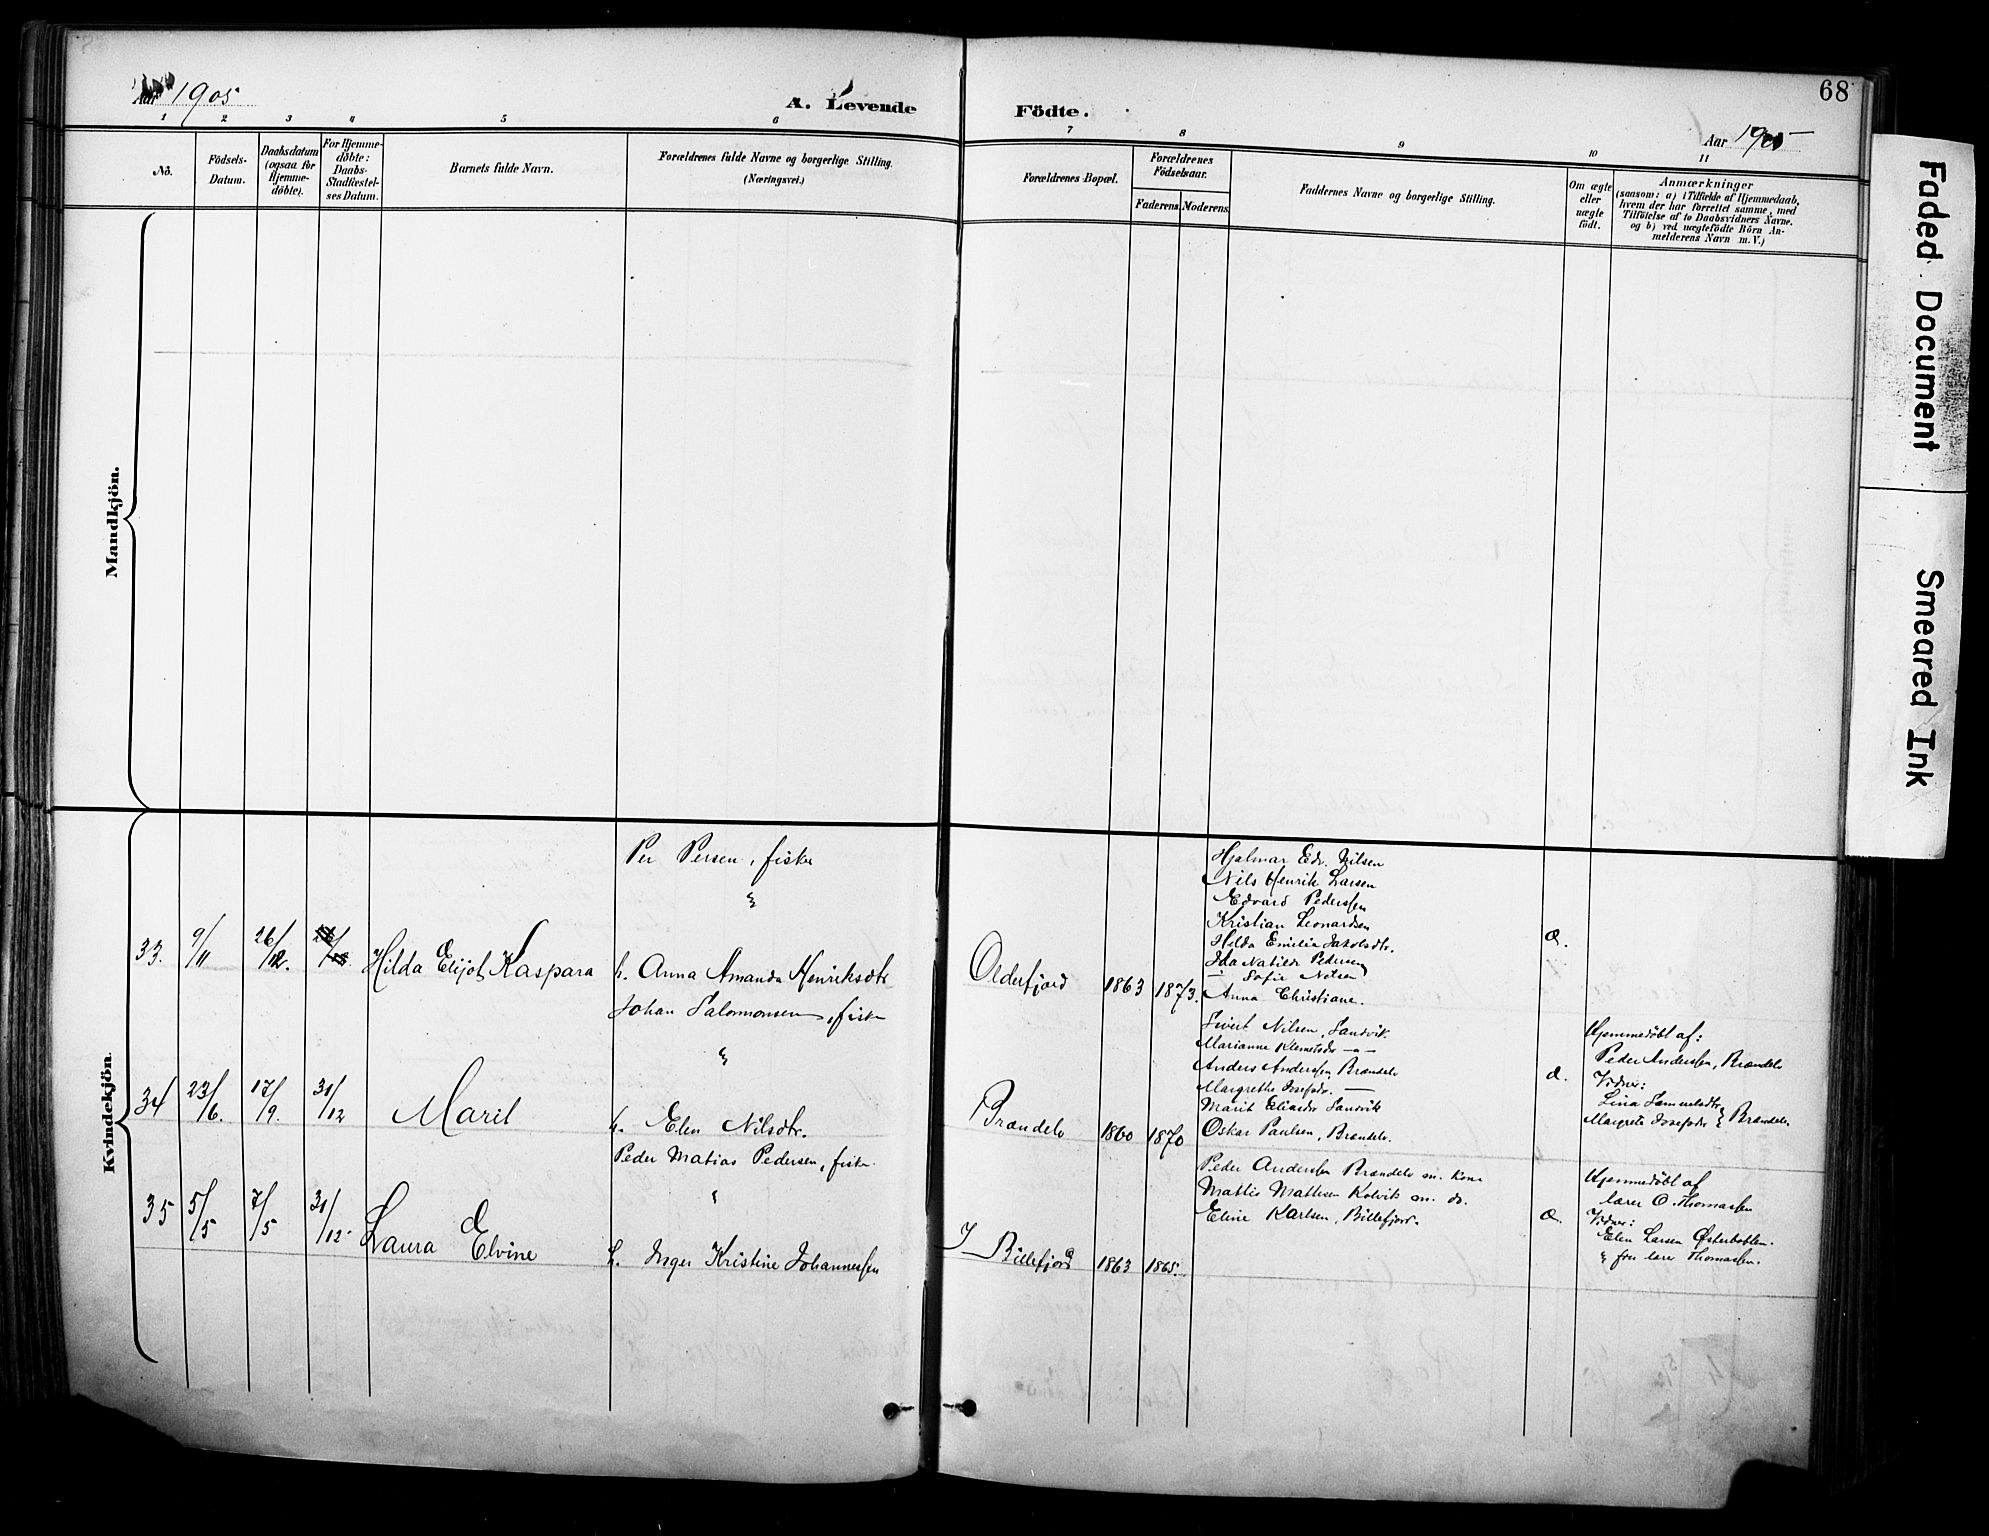 68
Aar 1905
A. Levende Födte.
Aar 1905
1 2 3 4 5 6 7 8 9 10 11
No.
Födsels-Datum.
Daabsdatum (ogsaa for Hjemme-döbte).
For Hjemme-döbte: Daabs-Stadfæstel-ses Datum.
Barnets fulde Navn.
Forældrenes fulde Navne og borgerlige Stilling.
(Næringsvei.)
Forældrenes Bopæl.
Forældrenes Födselsaar.
Faderens. Moderens.
Faddernes Navne og borgerlige Stilling.
Om ægte eller uægte födt.
Anmærkninger
(saasom: a) i Tilfælde af Hjemmedaab,
hvem der har forrettet samme, med
Tilföielse af to Daabsvidners Navne.
og b) ved uægtefödte Börn An-
melderens Navn m. V.)
Mandkjön.
Kvindekjön.
33. 9/11 26/12. Hilda Elijot Kaspara
Per Persen, fisker
h. Anna Amanda Henriksdtr
Olderfjord 1863 1873.
Hjalmar Edv. Nilsen
Nils Henrik Larsen
Edvard Pederssen
Kristian Leonardsen
Hilda Emilie Jakobsdtr.
Ida Matilde Pedersen
— Sofie Nilsen
Anna Christiane.
Æ.
34 23/6. 17/9. 31/12 Marit
Johan Salomonsen, fisker
h. Elen Nilsdtr.
Brændelv 1860 1870
Sivert Nilsen, Sandvik
Marianne Klemetsdr —"—
Anders Anderssen Brændelv
Margrethe Josefsdr. —
Marit Eliasdr Sandvik
Oskar Paulsen, Brændelv.
Æ.
Hjemmedöbt af:
Peder Anderssen, Brændelv
Vidner:
Lina Samuelsdtr
Margrete Josefsdr } Brændelv
35 5/5 7/5 31/12 Laura Elvine
Peder Matias Pedersen, fisker.
h. Inger Kristine Johannessen
I. Billefjord 1863 1865.
Peder Anderssen Brændelv m. kone
Mattis Mathisen Kolvik m. do.
Eline Karlsen, Billefjord.
Æ.
Hjemmedöbt af
lærer O. Thomassen
Vidner:
Elen Larsen Østerbotten.
" fru lærer Thomassen.
Faded Document
Smeared Ink